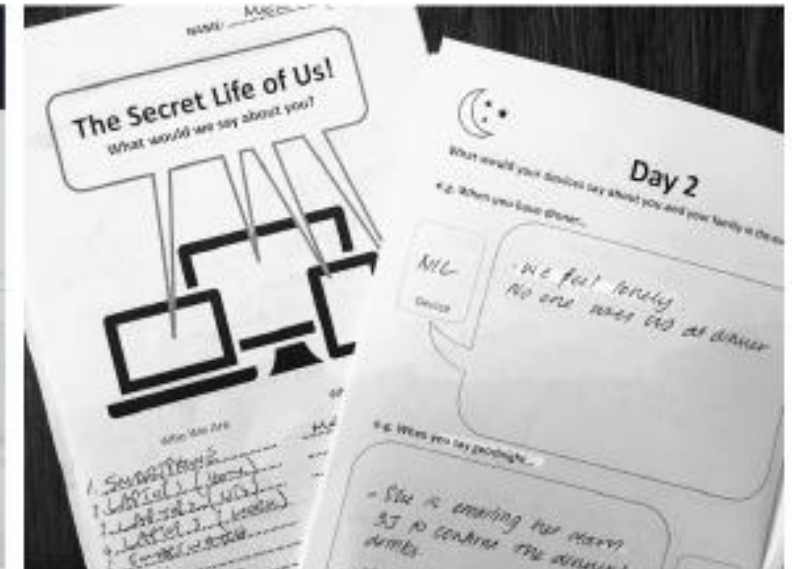 NAME:
The Secret Life of Us!
What would we say about you?
Who We Are
1. SMARTPHONE
2. LAPTOP 1
3. LAPTOP 2
4. LAPTOP 3
Day 2
What would your devices say about you and your family in the
e.g. When you have dinner...
NIL
Device
- We feel lonely
No one uses us at dinner
e.g. When you say goodnight...
- She is emailing her mom
to confirm the
drinks